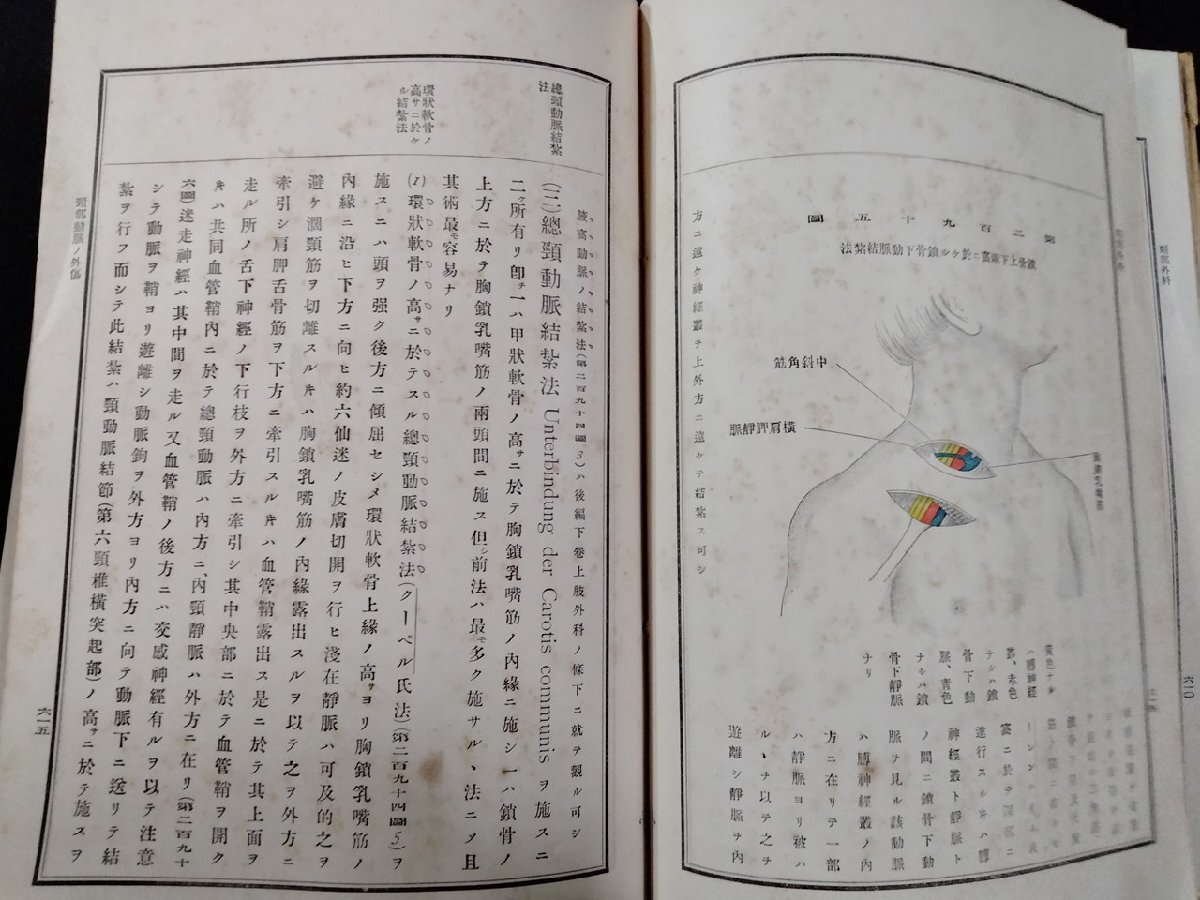 頸部外科
六一〇
第二百九十五圖
鎖骨上下顎窩ニ於ケル鎖骨下動脈結紮法
中斜角筋
橫肩胛靜脈
黃色ナル
ハ膊神經
叢、赤色
ナルハ鎖
骨下動
脈、青色
ナルハ鎖
骨下靜脈
ナリ
窩ニ於テ深部ニ
進行スルキハ膊
神經叢ト靜脈ト
ノ間ニ鎖骨下動
脈ヲ見ル該動脈
ハ膊神經叢ノ內
方ニ在リテ一部
ハ靜脈ヨリ被ハ
ルヽヲ以テ之ヲ
遊離シ靜脈ヲ內
方ニ避ケ神經叢ヲ上外方ニ遠ケテ結紮ス可シ
總頸動脈結紮
法
環狀軟骨ノ
高サニ於ケ
ル結紮法
腋窩動脈ノ結紮法(第二百九十四圖3)ハ後編下卷上肢外科ノ條下ニ就テ觀ル可シ
(三)總頸動脈結紮法 Unterbindung der Carotis communis ヲ施スニ
二ヶ所有リ卽チ一ハ甲狀軟骨ノ高サニ於テ胸鎖乳嘴筋ノ內緣ニ施シ一ハ鎖骨ノ
上方ニ於テ胸鎖乳嘴筋ノ兩頭間ニ施ス但シ前法ハ最モ多ク施サルヽ法ニソ且
其術最モ容易ナリ
(1)環狀軟骨ノ高サニ於テスル總頸動脈結紮法(クーペル氏法)(第二百九十四圖5)ヲ
施スニハ頭ヲ强ク後方ニ傾屈セシメ環狀軟骨上緣ノ高サヨリ胸鎖乳嘴筋ノ
內緣ニ沿ヒ下方ニ向ヒ約六仙迷ノ皮膚切開ヲ行ヒ淺在靜脈ハ可及的之ヲ
避ケ濶頸筋ヲ切離スルキハ胸鎖乳嘴筋ノ內緣露出スルヲ以テ之ヲ外方ニ
牽引シ肩胛舌骨筋ヲ下方ニ牽引スルキハ血管鞘露出ス是ニ於テ其上面ヲ
走ル所ノ舌下神經ノ下行枝ヲ外方ニ牽引シ其中央部ニ於テ血管鞘ヲ開ク
キハ共同血管鞘內ニ於テ總頸動脈ハ內方ニ、內頸靜脈ハ外方ニ在リ(第二百九十
六圖)迷走神經ハ其中間ヲ走ル又血管鞘ノ後方ニハ交感神經有ルヲ以テ注意
シテ動脈ヲ鞘ヨリ遊離シ動脈鉤ヲ外方ヨリ內方ニ向テ動脈下ニ送リテ結
紮ヲ行フ而シテ此結紮ハ頸動脈結節(第六頸椎橫突起部)ノ高サニ於テ施スヲ
頸部動脈ノ外傷
六一五